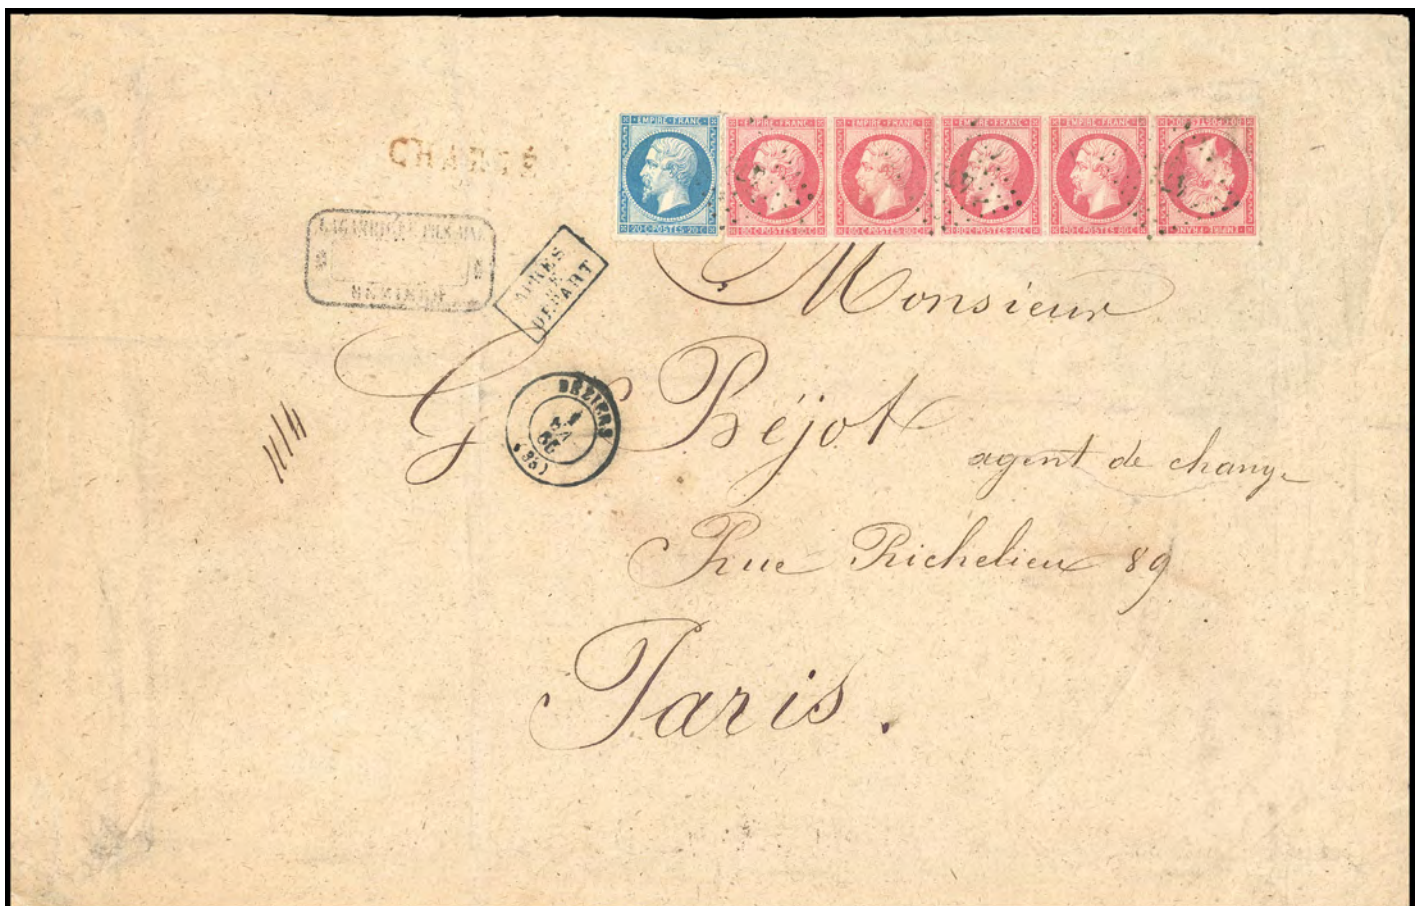 CHARGÉ
EMPIRE FRANC
20 C POSTES 20 C
EMPIRE FRANC
80 C POSTES 80 C
EMPIRE FRANC
80 C POSTES 80 C
EMPIRE FRANC
80 C POSTES 80 C
EMPIRE FRANC
80 C POSTES 80 C
EMPIRE FRANC
80 C POSTES 80 C
BEZIERS
APRÈS
LE
DÉPART
Monsieur
G Béjot
agent de change
Rue Richelieu 89
Paris.
BÉZIERS
1